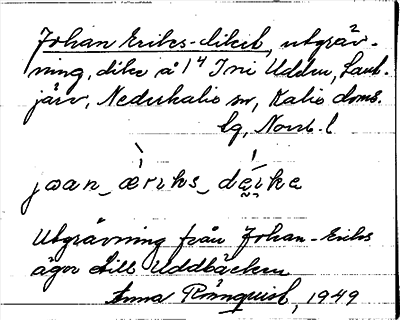 Johan Eriks-diket, utgräv-
ning, dike å 1⁴ Ini Udden, Saut-
järv, Nederkalix sn, Kalix doms.
lg, Norrb. l
jɔan_æriks_dɛikə
Utgrävning från Johan-Eriks
ägor till Uddbäcken
Anna Rönnquist, 1949